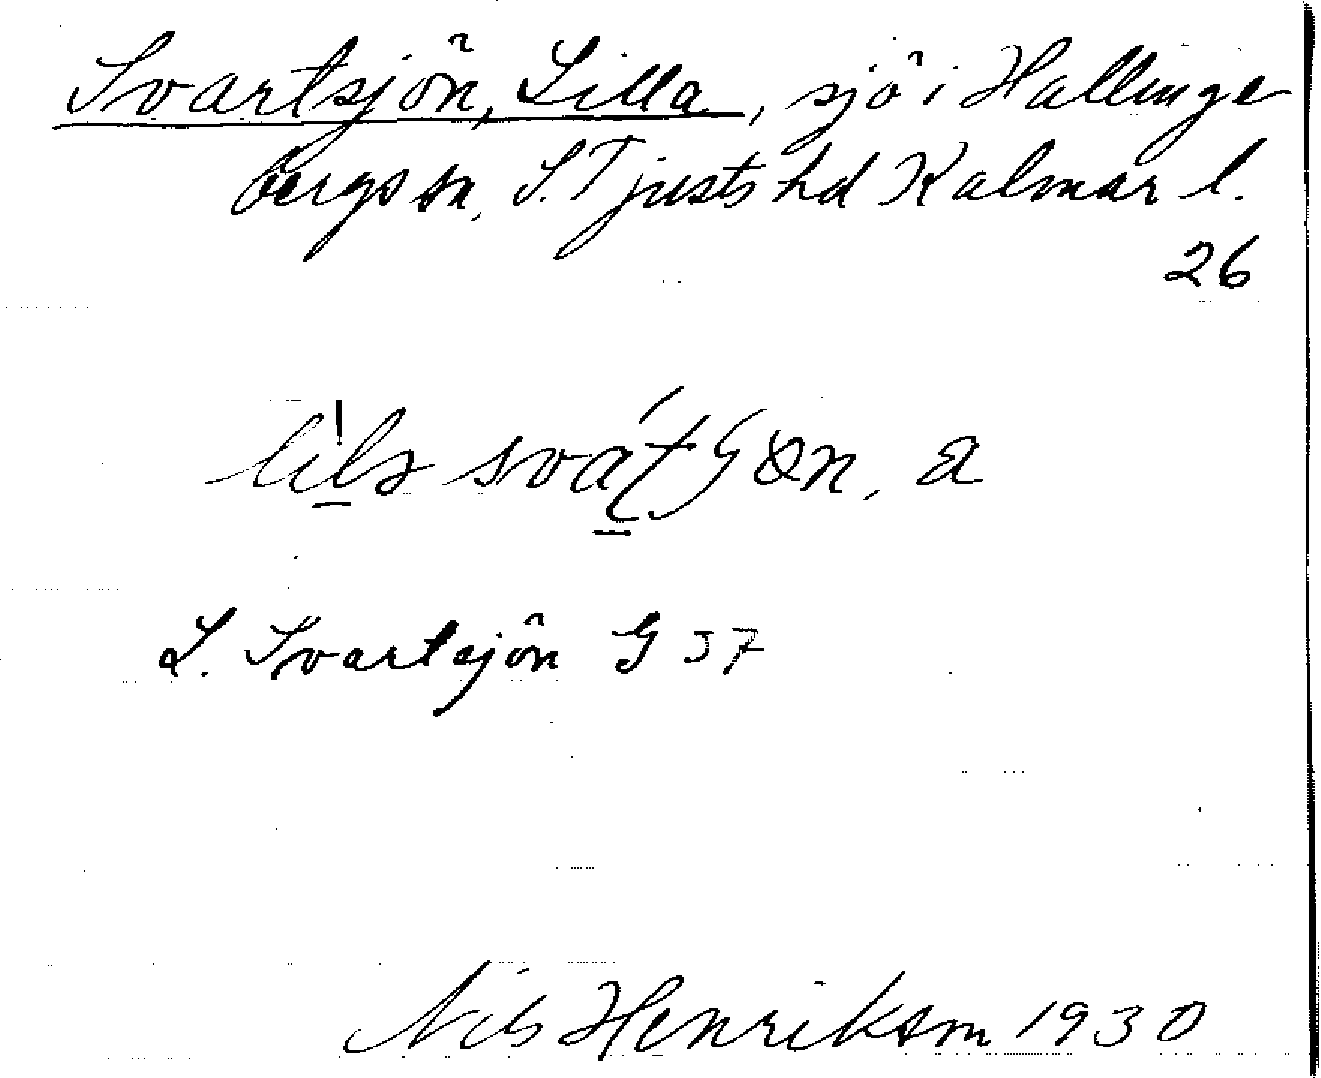 Svartsjön, Lilla, sjö i Hallinge
bergs sn, S. Tjusts hd Kalmar l.
26
L. Svartsjön G 37
Nils Henriksson 1930